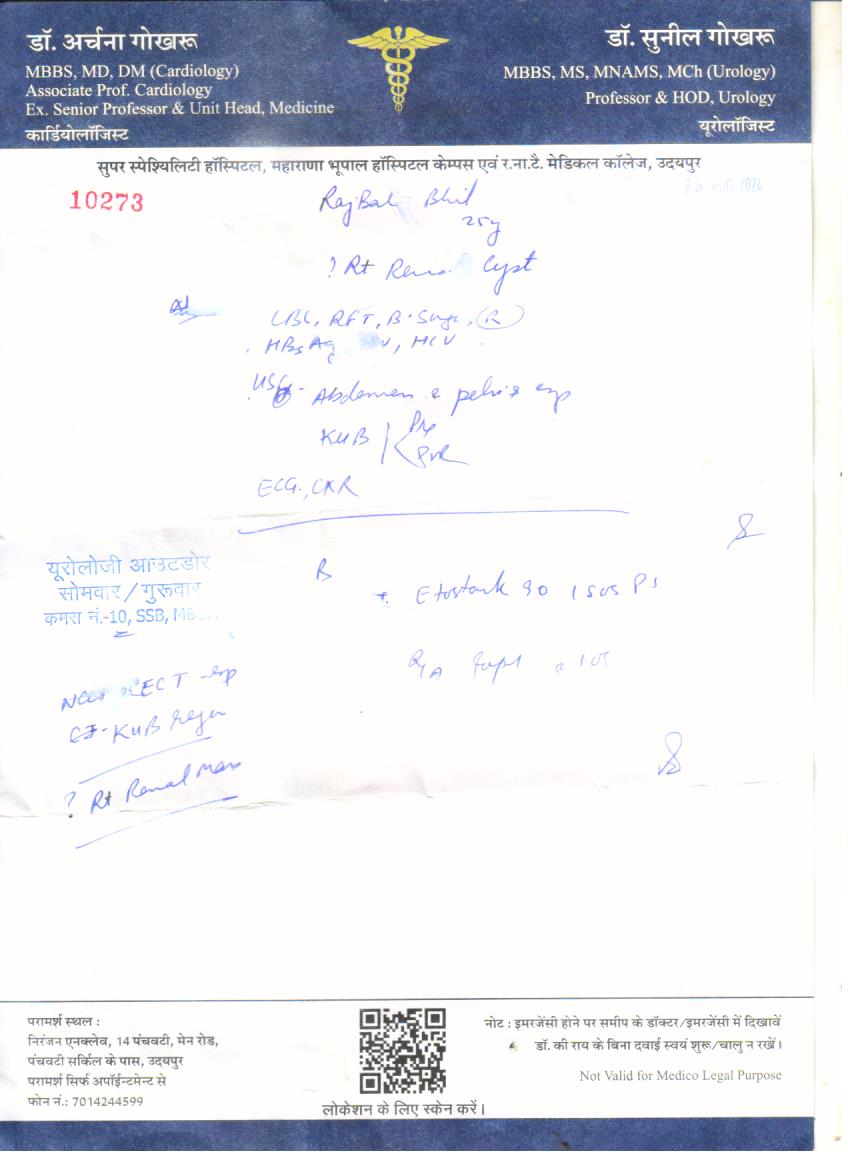 डॉ. अर्चना गोखरू
MBBS, MD, DM (Cardiology)
Associate Prof. Cardiology
Ex. Senior Professor & Unit Head, Medicine
कार्डियोलॉजिस्ट
डॉ. सुनील गोखरू
MBBS, MS, MNAMS, MCh (Urology)
Professor & HOD, Urology
यूरोलॉजिस्ट
सुपर स्पेश्यिलिटी हॉस्पिटल, महाराणा भूपाल हॉस्पिटल केम्पस एवं र.ना.टै. मेडिकल कॉलेज, उदयपुर
10273
23 AUG 2024
Bhil
25y
? Rt Renal Cyst
CBC, RFT, B. Sugar, (R)
HBsAg HCV
USG - Abdomen & pelvis
KUB Pre
PVR
ECG, CXR
यूरोलोजी आउटडोर
सोमवार / गुरूवार
कमरा नं.-10, SSB,
90 1 SOS
CECT
KUB region
? Rt Renal Mass
परामर्श स्थल :
निरंजन एनक्लेव, 14 पंचवटी, मेन रोड,
पंचवटी सर्किल के पास, उदयपुर
परामर्श सिर्फ अपॉईन्टमेन्ट से
फोन नं.: 7014244599
लोकेशन के लिए स्केन करें।
नोट : इमरजेंसी होने पर समीप के डॉक्टर/इमरजेंसी में दिखावें
डॉ. की राय के बिना दवाई स्वयं शुरू/चालु न रखें।
Not Valid for Medico Legal Purpose